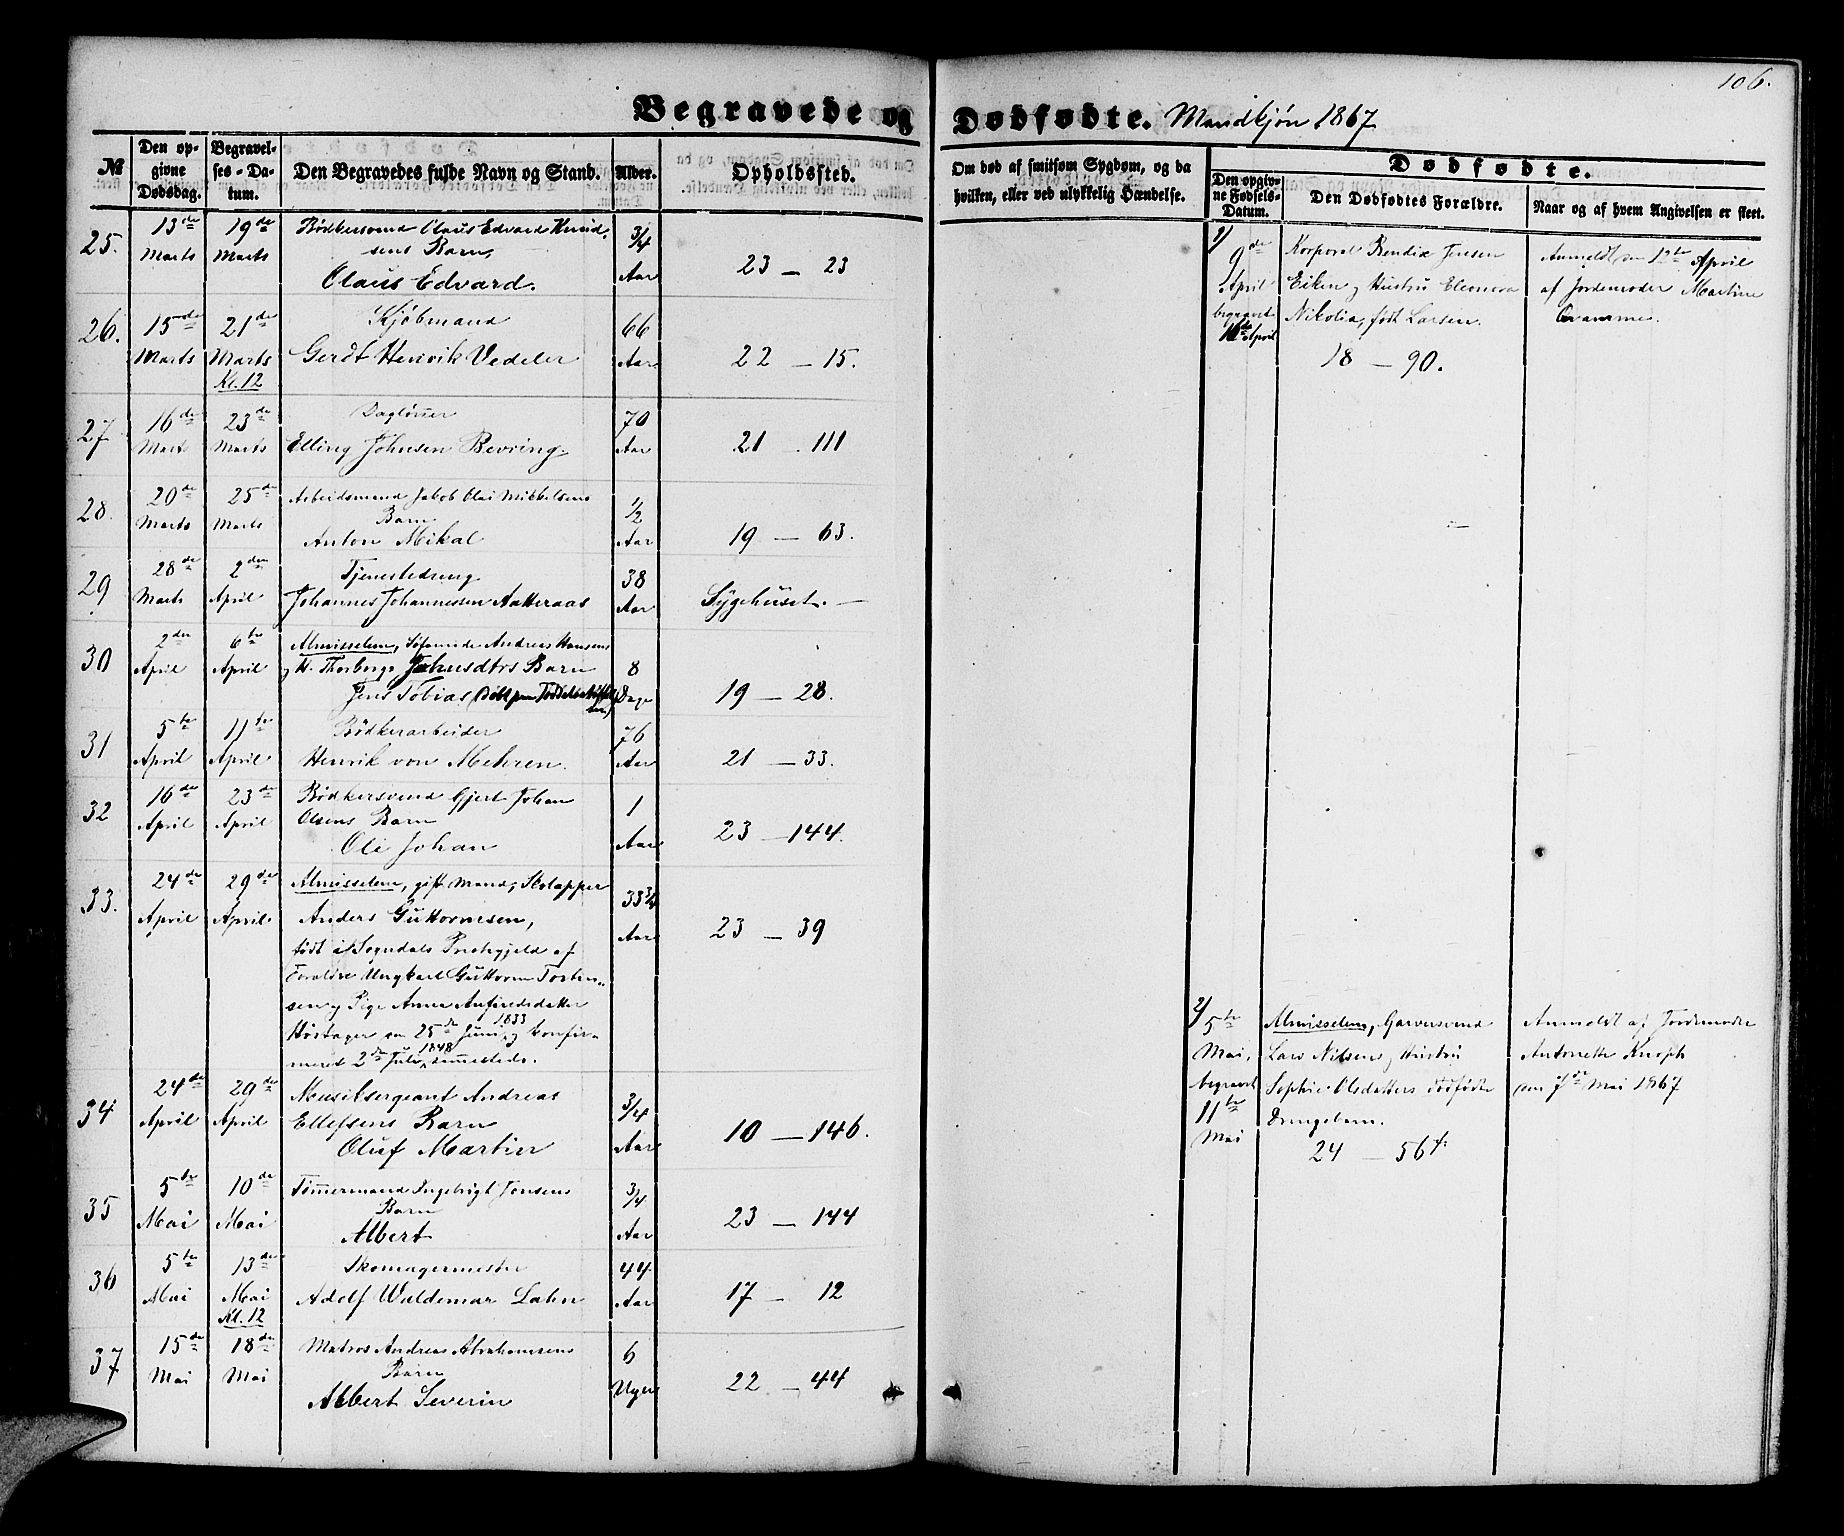 106.
Begravede og Dødfødte. Mandkjøn 1867
№
Den opgivne Dødsdag.
Begravelses-Datum.
Den Begravedes fulde Navn og Stand.
Alder.
Opholdssted.
Om død af smitsom Sygdom, og da hvilken, eller ved ulykkelig Hændelse.
Dødfødte.
Den opgivne Fødsels-Datum.
Den Dødfødtes Forældre.
Naar og af hvem Angivelsen er skeet.
25. 13de Marts 19de Marts Bødkersvend Claus Edvard
sens Barn,
Claus Edvard. 3/4 Aar 23 — 23
26. 15de Marts 21de Marts Kl. 12 Kjøbmand
Gerdt Henrik Vedeler 66 Aar 22 — 15.
27 16de Marts 23de Marts Daglønner
Elling Johnsen Bevring. 70 Aar 21 . 111
28. 20de Marts 25de Marts Arbeidsmand Jakob Olai Mikkelsens
Barn
Anton Mikal 1/2 Aar 19 — 63.
29 28de Marts 2den April Tjenestedreng
Johannes Johannessen Aatteraas 38 Aar Sygehuset. —
30 2den April 6te April Almisselem, Andreas Hansens
og H. Thorborg Johnsdtrs Barn
Jens Tobias 8 Dage 19 — 28.
31 5te April 11te April Bødkerarbeider
Henrik von Mehren. 76 Aar 21 — 33.
32 16de April 23de April Bødkersvend Gjert Johan
Olsens Barn
Ole Johan 1 Aar 23 — 144.
33. 24de April 29de April Almisselem, gift Mand, Skolapper
Anders Guttormsen,
født i Sogndals Præstegjeld af
Forældre Ungkarl Guttorm Torsten-
sen og Pige Anna Anfindsdatter
Høstager den 25de Juni 1833 og konfir-
mered 2den Juli 1848, sammesteds. 33 3/4 Aar 23 — 39
34 24de April 29de April Musiksergeant Andreas
Ellefsens Barn
Oluf Martin 3/4 Aar 10 — 146.
35 5te Mai 10de Mai Tømmermand Ingebrigt Jonsens
Barn
Albert 3/4 Aar 23 — 144
36 5te Mai 13de Mai Kl. 12 Skomagermester
Adolf Waldemar Lahn 44 Aar 17 — 12
37 15de Mai 18de Mai Matros Andreas Abrahamsens
Barn
Albert Severin 6 Uger 22 — 44
1/ 9de April begravet April Korporal Bendix Jensen
Eiken og Hustru Eleonora
Nikolia, født Larsen.
18 — 90.
Anmeldt den 12te April
af Jordemoder Martine
2/ 5te Mai, begravet 11te Mai Almisselem, Garversvend
Lars Nilsens og Hustru
Sophie Olsdatters dødfødte
Drengebarn.
24 — 56
Anmeldt af Jordemoder
Antonette Knoph
den 7de Mai 1867